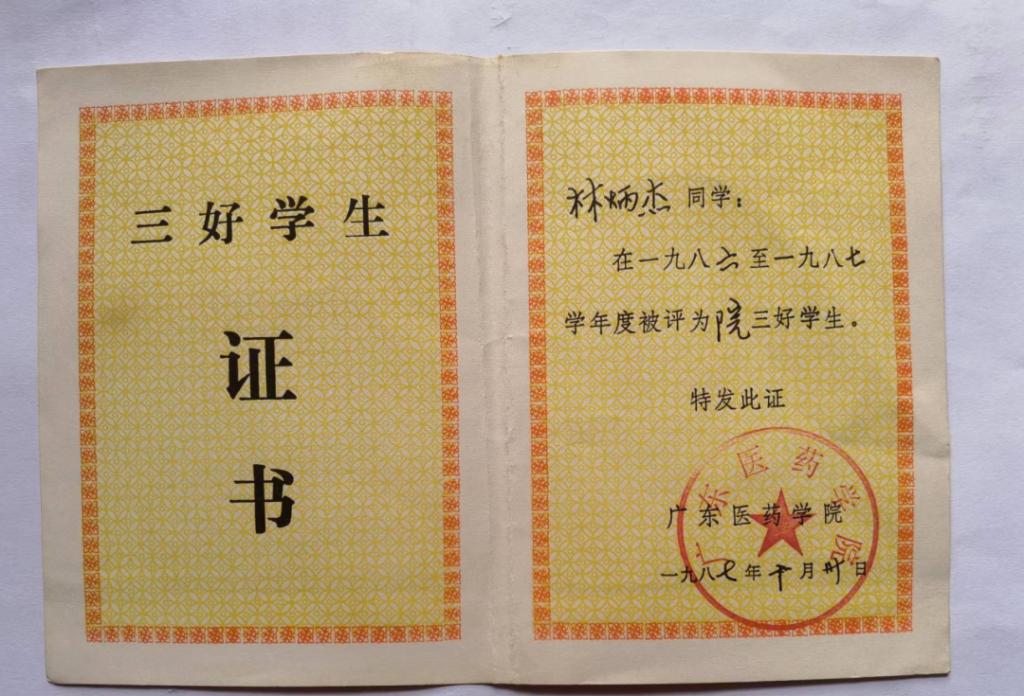 三好学生
证
书
林炳杰 同学：
在一九八六至一九八七
学年度被评为院三好学生。
特发此证
广东医药学院
广东医药学院
一九八七年十月卅日